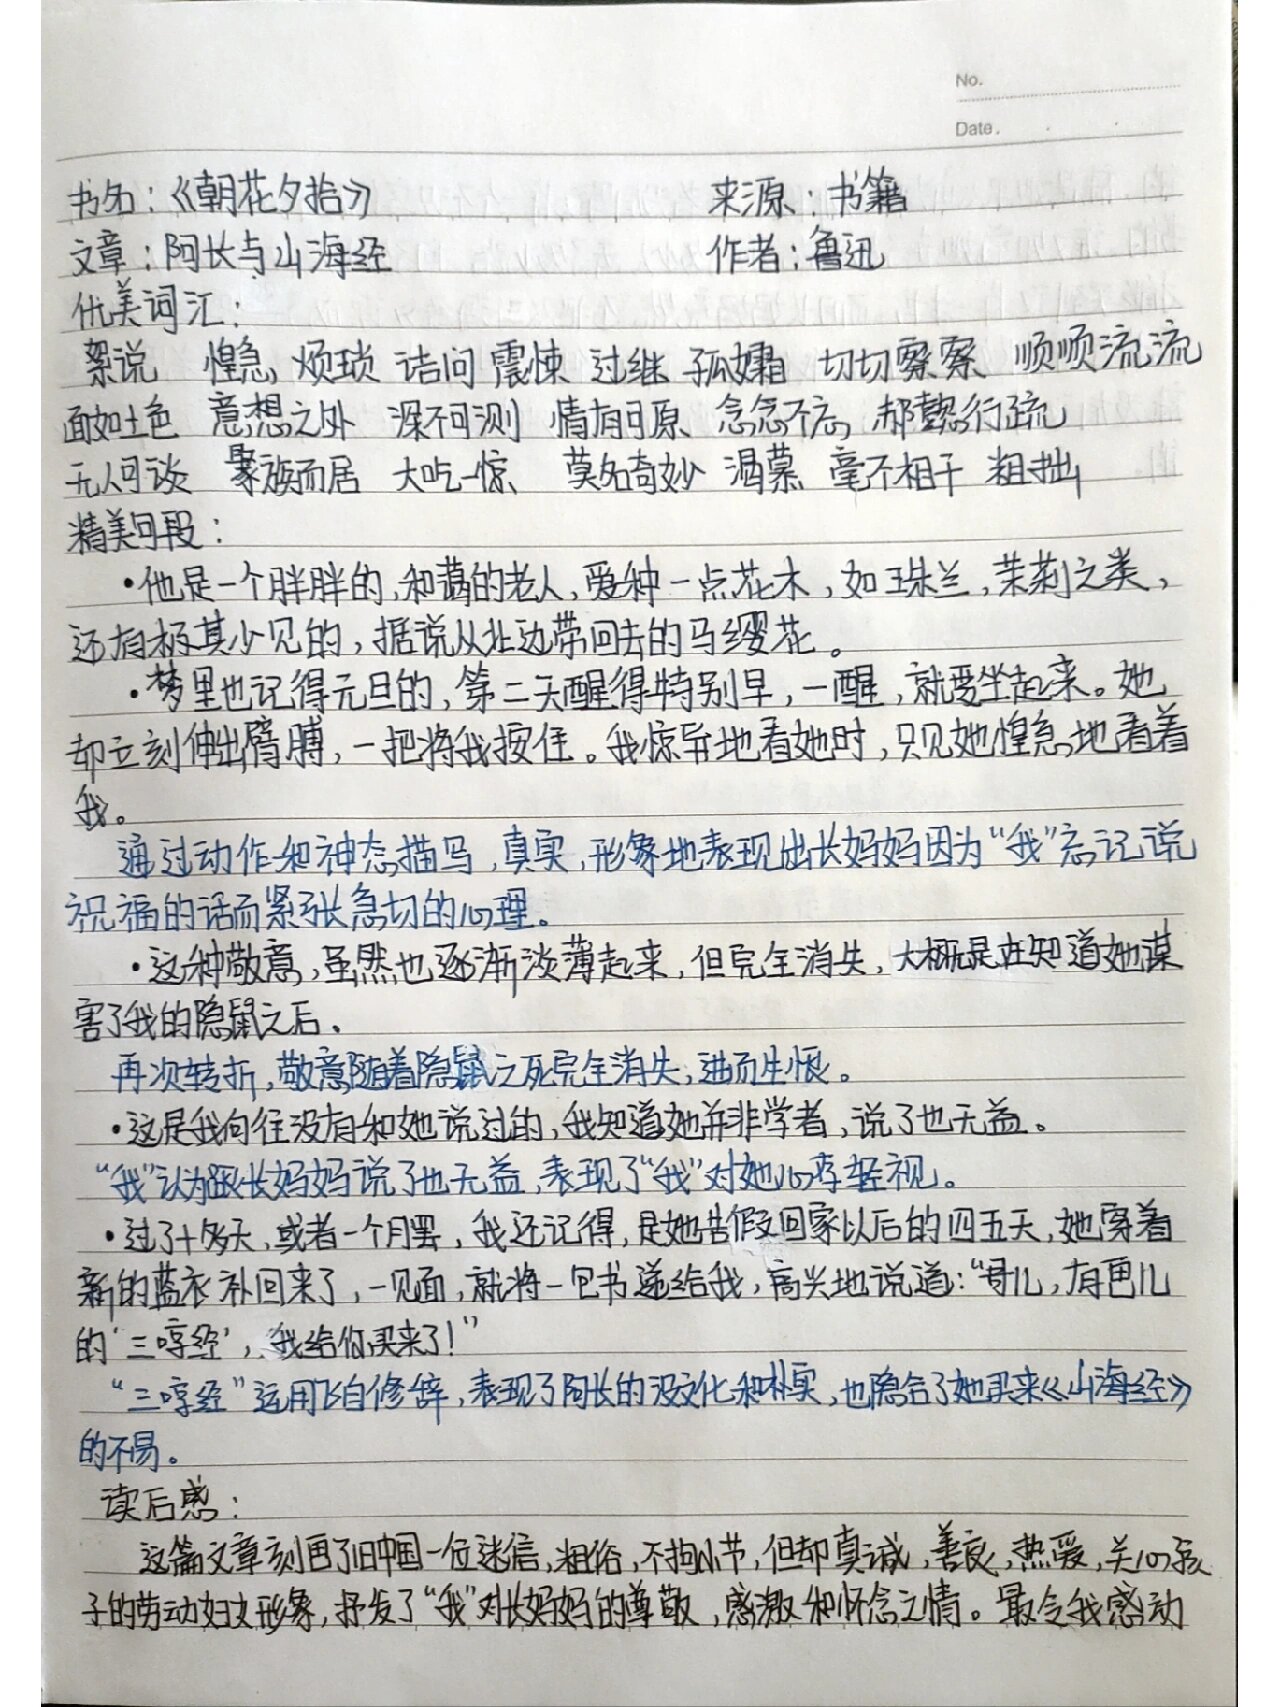 No.
Date.
书名:《朝花夕拾》 来源:书籍
文章:阿长与山海经 作者:鲁迅
优美词汇:
絮说 惶急 烦琐 诘问 震悚 过继 孤孀 切切察察 顺顺流流
面如土色 意想之外 深不可测 情有可原 念念不忘 郝懿行疏
无人可谈 聚族而居 大吃一惊 莫名奇妙 渴慕 毫不相干 粗拙
精美句段:
•他是一个胖胖的,和蔼的老人,爱种一点花木,如珠兰,茉莉之类,
还有极其少见的,据说从北边带回去的马缨花。
•梦里也记得元旦的,第二天醒得特别早,一醒,就要坐起来。她
却立刻伸出臂膊,一把将我按住。我惊异地看她时,只见她惶急地看着
我。
通过动作和神态描写,真实,形象地表现出长妈妈因为“我”忘记说
祝福的话而紧张急切的心理。
•这种敬意,虽然也逐渐淡薄起来,但完全消失,大概是在知道她谋
害了我的隐鼠之后.
再次转折,敬意随着隐鼠之死完全消失,进而生恨。
•这是我向往没有和她说过的,我知道她并非学者,说了也无益。
“我”认为跟长妈妈说了也无益,表现了“我”对她心存轻视。
•过了十多天,或者一个月罢,我还记得,是她告假回家以后的四五天,她穿着
新的蓝衣补回来了,一见面,就将一包书递给我,高兴地说道:“哥儿,有画儿
的‘三哼经’,我给你买来了!”
“三哼经”运用飞白修辞,表现了阿长的没文化和朴实,也隐含了她买来《山海经》
的不易。
读后感:
这篇文章刻画了旧中国一位迷信,粗俗,不拘小节,但却真诚,善良,热爱,关心孩
子的劳动妇女形象,抒发了“我”对长妈妈的尊敬,感激和怀念之情。最令我感动